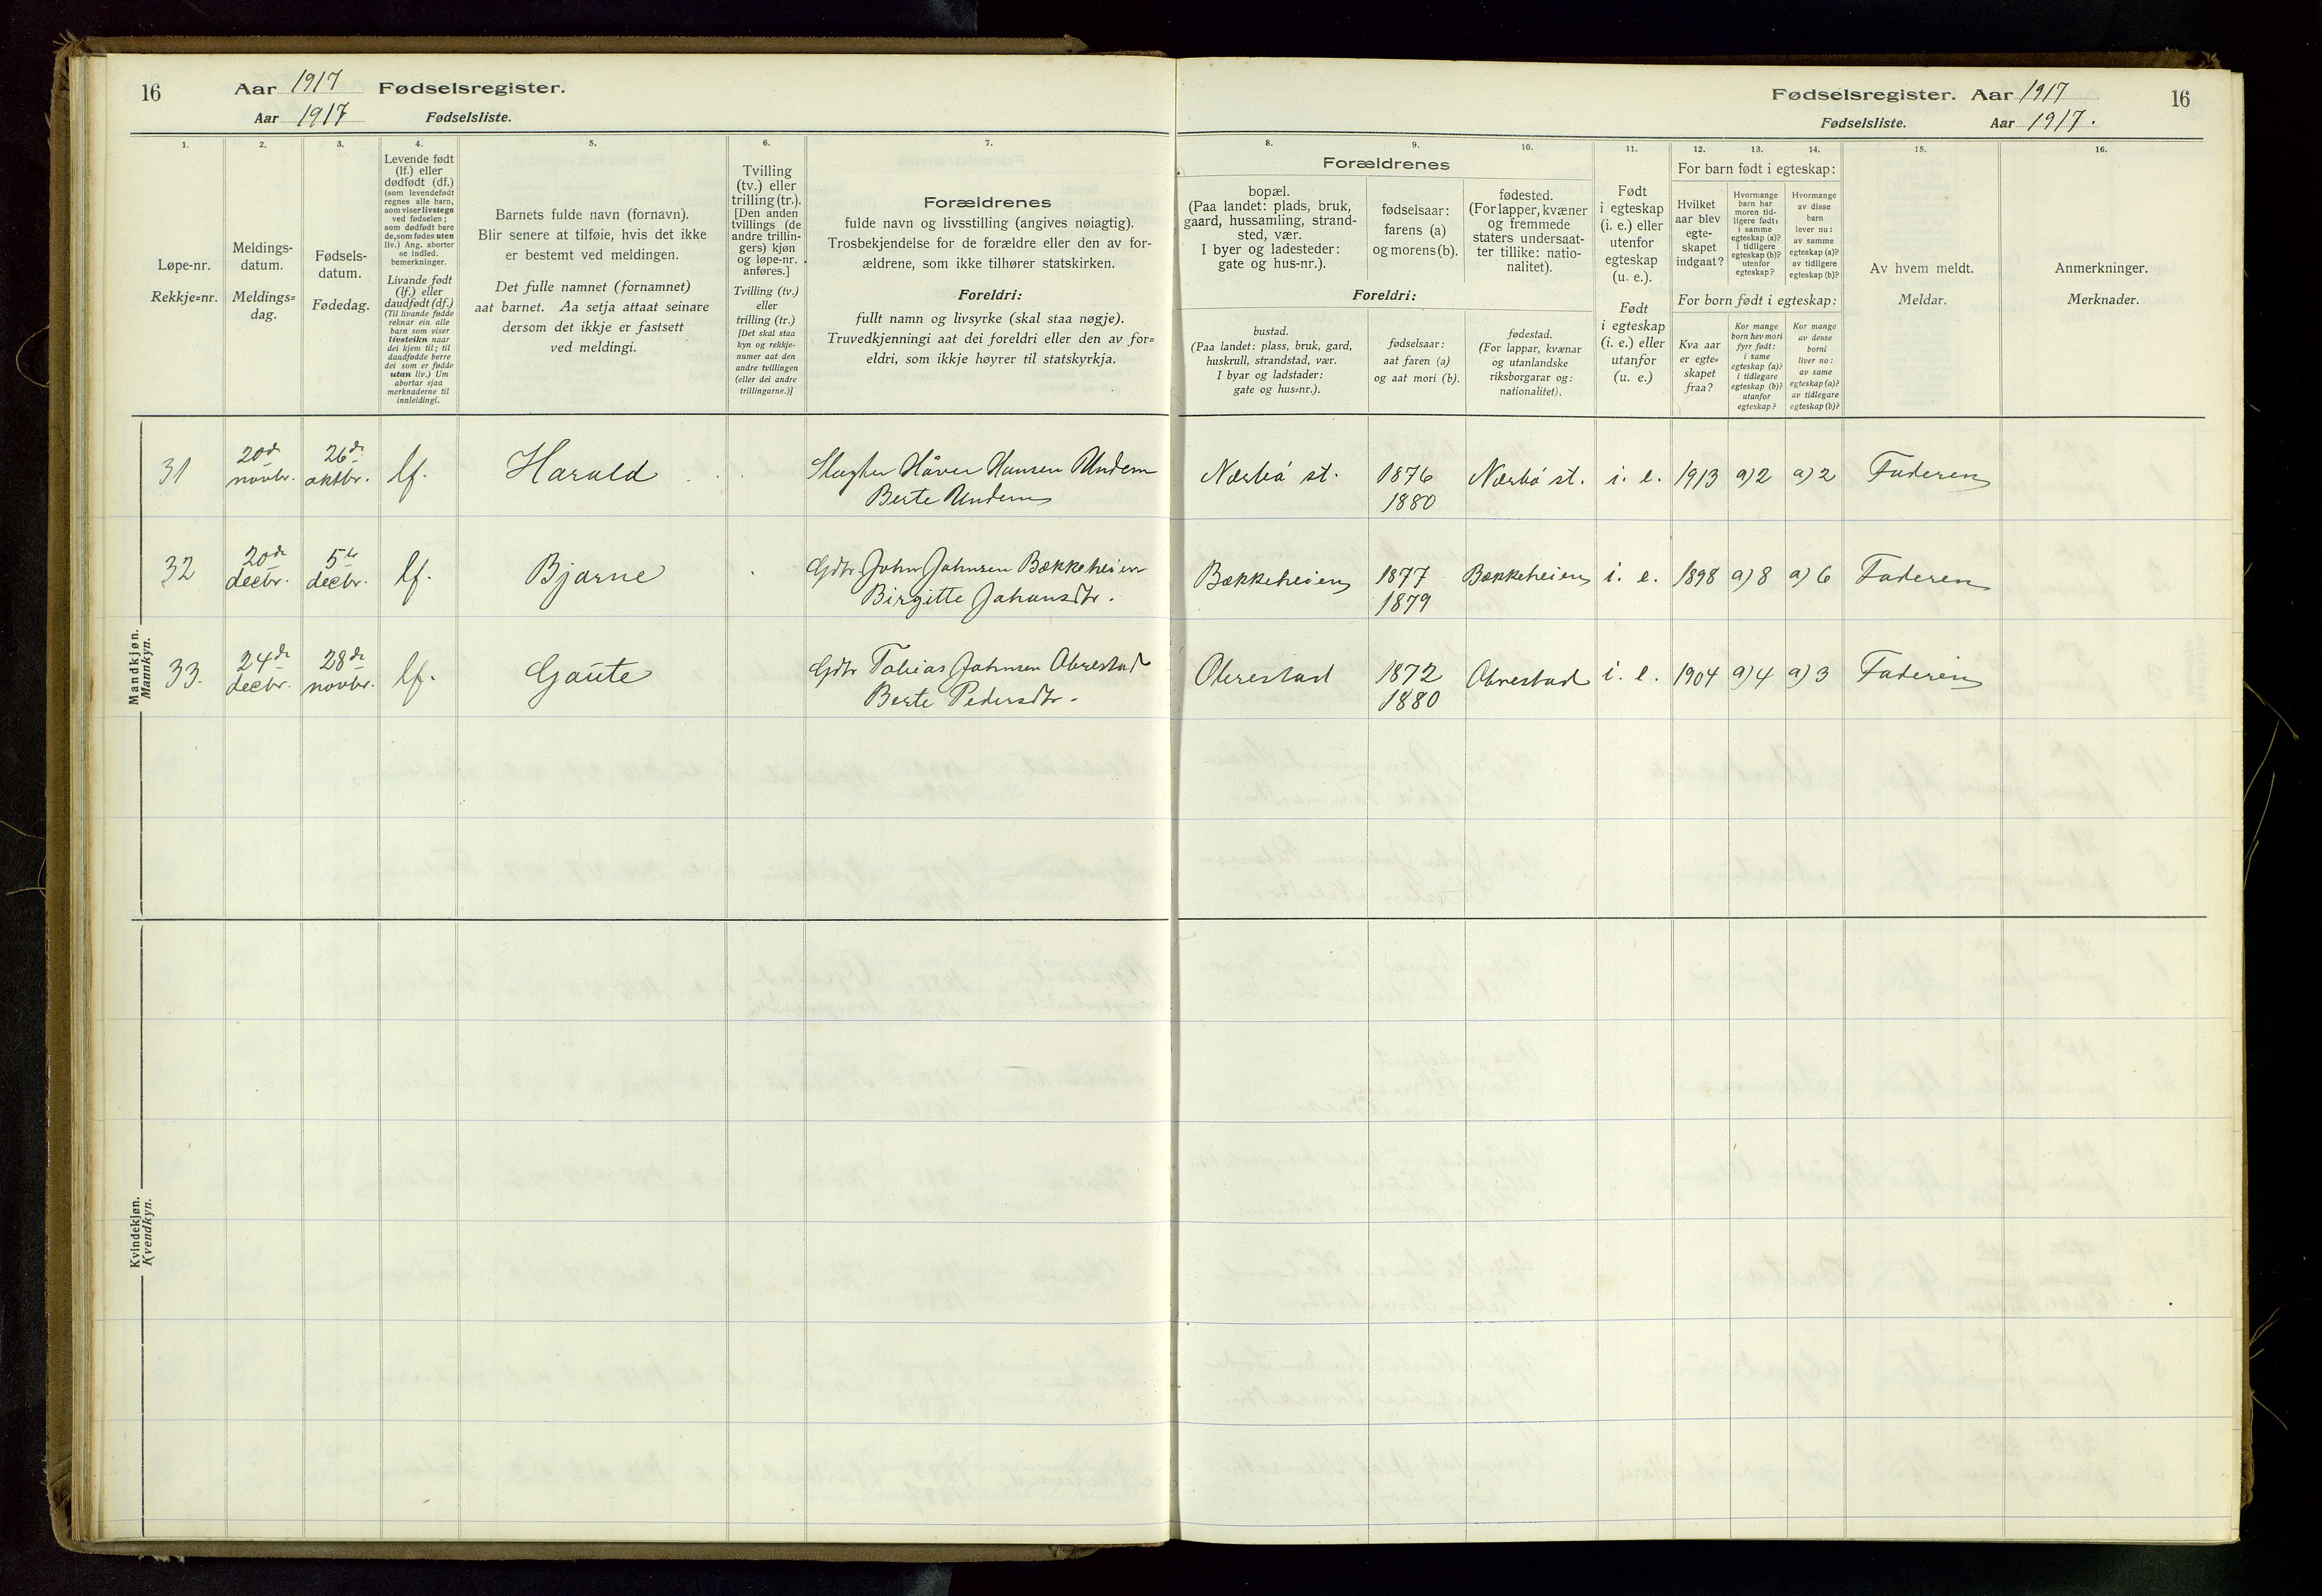 16
Aar 1917 Fødselsregister.
Aar 1917 Fødselsliste.
Fødselsregister. Aar 1917
Fødselsliste. Aar 1917.
16
1.
Løpe-nr.
Rekkje=nr.
2.
Meldings-
datum.
Meldings=
dag.
3.
Fødsels-
datum.
Fødedag.
4.
Levende født
(lf.) eller
dødfødt (df.)
(som levendefødt
regnes alle barn,
som viser livstegn
ved fødselen;
som dødfødt bare
de, som fødes uten
liv.) Ang. aborter
se indled.
bemerkninger.
Livande født
(lf.) eller
daudfødt (df.)
(Til livande fødde
reknar ein alle
barn som viser
livsteikn naar
dei kjem til; til
daudfødde berre
dei som er fødde
utan liv.) Um
abortar sjaa
merknaderne til
innleidingi.
5.
Barnets fulde navn (fornavn).
Blir senere at tilføie, hvis det ikke
er bestemt ved meldingen.
Det fulle namnet (fornamnet)
aat barnet. Aa setja attaat seinare
dersom det ikkje er fastsett
ved meldingi.
6.
Tvilling
(tv.) eller
trilling (tr.).
[Den anden
tvillings (de
andre trillin-
gers) kjøn
og løpe-nr.
anføres.]
Tvilling (tv.)
eller
trilling (tr.)
[Det skal staa
kyn og rekkje-
numer aat den
andre tvillingen
(eller dei andre
trillingarne.)]
7.
Forældrenes
fulde navn og livsstilling (angives nøiagtig).
Trosbekjendelse for de forældre eller den av for-
ældrene, som ikke tilhører statskirken.
Foreldri:
fullt namn og livsyrke (skal staa nøgje).
Truvedkjenningi aat dei foreldri eller den av for=
eldri, som ikkje høyrer til statskyrkja.
Forældrenes
8.
bopæl.
(Paa landet: plads, bruk,
gaard, hussamling, strand-
sted, vær.
I byer og ladesteder:
gate og hus-nr.).
9.
fødselsaar:
farens (a)
og morens (b).
10.
fødested.
(For lapper, kvæner
og fremmede
staters undersaat-
ter tillike: natio-
nalitet).
Foreldri:
bustad.
(Paa landet: plass, bruk, gard,
huskrull, strandstad, vær.
I byar og ladstader:
gate og hus=nr.).
fødselsaar:
aat faren (a)
og aat mori (b).
fødestad.
(For lappar, kvænar
og utanlandske
riksborgarar og:
nationalitet).
11.
Født
i egteskap
(i. e.) eller
utenfor
egteskap
(u. e.).
Født
i egteskap
(i. e.) eller
utanfor
(u. e.)
For barn født i egteskap:
12.
Hvilket
aar blev
egte-
skapet
indgaat?
13.
Hvormange
barn har
moren tid-
ligere født:
i samme
egteskap (a)?
i tidligere
egteskap (b)?
utenfor
egteskap?
14.
Hvormange
av disse
barn
lever nu:
av samme
egteskap (a)?
av tidligere
egteskap (b)?
For born født i egteskap:
Kva aar
er egte=
skapet
fraa?
Kor mange
born hev mori
fyrr født:
i same
egteskap (a)?
i tidlegare
egteskap (b)?
utanfor
egteskap?
Kor mange
av desse
borni
liver no:
av same
egteskap (a)?
av tidlegare
egteskap (b)?
15.
Av hvem meldt.
Meldar.
16.
Anmerkninger.
Merknader.
Mandkjøn.
Mannkyn.
31 20de novbr. 26de oktbr. lf. Harald Slagter Håver Hansen Undem Nærbö st. 1876 Nærbö st. i. e. 1913 a)2 a)2 Faderen
Berte Undem 1880
32 20de decbr. 5te decbr. lf. Bjarne Gdbr John Johnsen Bækkeheien Bækkeheien 1877 Bækkeheien i. e. 1898 a)8 a)6 Faderen
Birgitte Johansdtr. 1879
33. 24de decbr. 28de novbr. lf. Gaute Gdbr Tobias Johnsen Obrestad Obrestad 1872 Obrestad i. e. 1904 a)4 a)3 Faderen
Berte Pedersdtr. 1880
Kvindekjøn.
Kvendkyn.